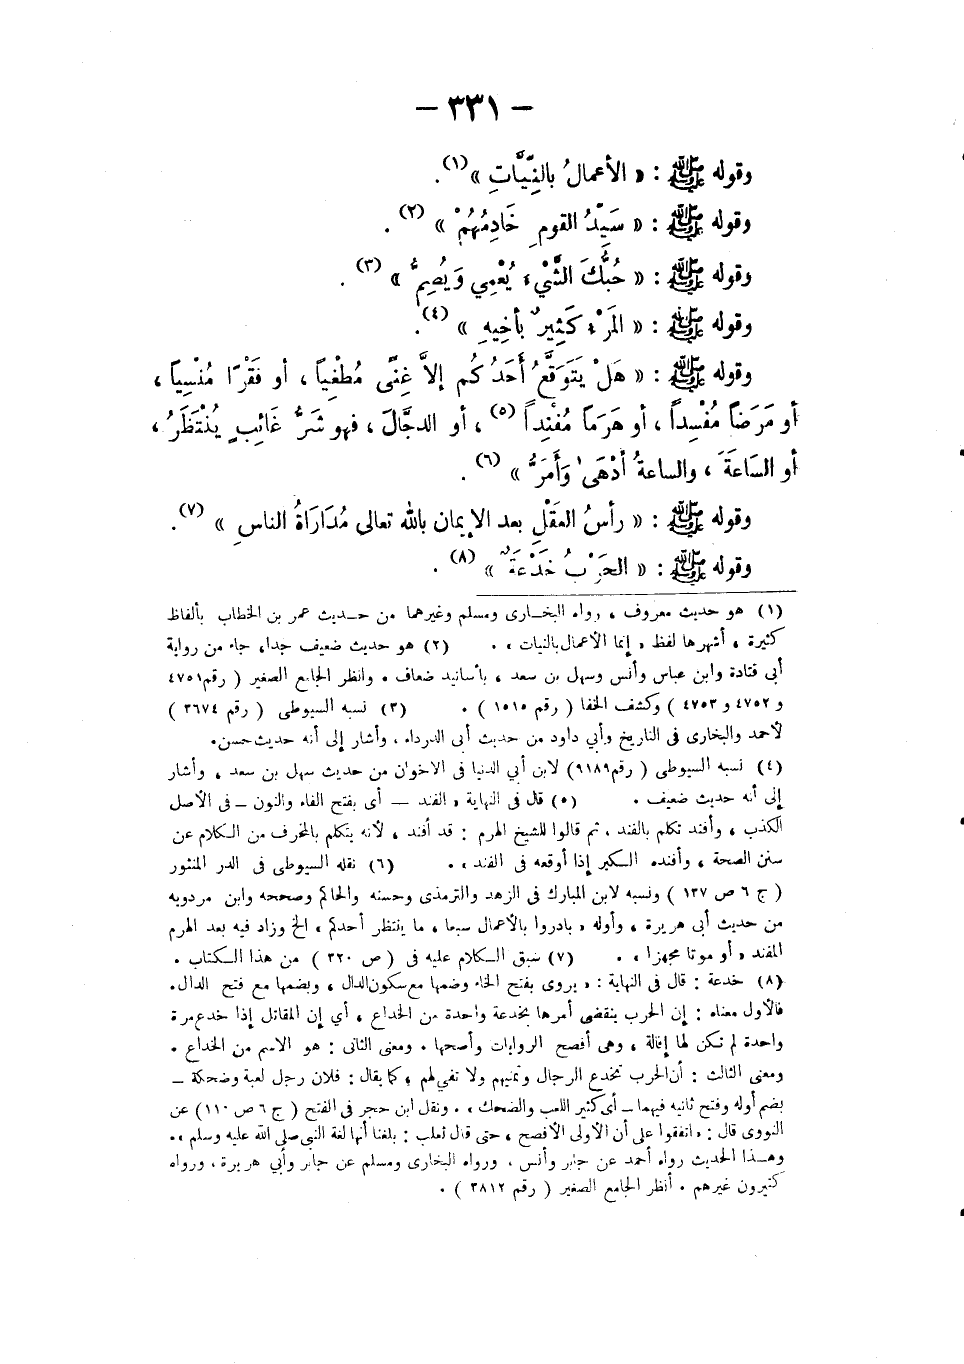 — ٣٣١ —
وقوله ﷺ : « الأعمالُ بالنِّيَّاتِ »(١).
وقوله ﷺ : « سَيِّدُ القومِ خَادِمُهُمْ »(٢).
وقوله ﷺ : « حُبُّكَ الشَّيْءَ يُعْمِي وَيُصِمُّ »(٣).
وقوله ﷺ : « المَرْءُ كَثِيرٌ بأخِيهِ »(٤).
وقوله ﷺ : « هَلْ يَتَوَقَّعُ أَحَدُكُم إلاَّ غِنًى مُطْغِياً، أو فَقْرًا مُنْسِياً،
أو مَرَضاً مُفْسِداً، أو هَرَماً مُفْنِداً(٥)، أو الدجَّالَ، فهو شَرُّ غَائِبٍ يُنْتَظَرُ،
أو السَاعَةَ، والساعةُ أدْهَى وَأَمَرُّ »(٦).
وقوله ﷺ : « رأسُ العَقْلِ بعد الإيمان بالله تعالى مُدَارَاةُ الناسِ »(٧).
وقوله ﷺ : « الحَرْبُ خَدْعَةٌ »(٨).
(١) هو حديث معروف، رواه البخارى ومسلم وغيرهما من حديث عمر بن الخطاب بألفاظ
كثيرة، أشهرها لفظ «إنما الأعمال بالنيات». (٢) هو حديث ضعيف جدا، جاء من رواية
أبى قتادة وابن عباس وأنس وسهل بن سعد، بأسانيد ضعاف. وانظر الجامع الصغير ( رقم ٤٧٥١
و ٤٧٥٢ و ٤٧٥٣ ) وكشف الخفا ( رقم ١٥١٥ ). (٣) نسبه السيوطى ( رقم ٣٦٧٤ )
لأحمد والبخارى فى التاريخ وأبي داود من حديث أبى الدرداء، وأشار إلى أنه حديث حسن.
(٤) نسبه السيوطى ( رقم ٩١٨٩) لابن أبي الدنيا فى الاخوان من حديث سهل بن سعد، وأشار
إلى أنه حديث ضعيف. (٥) قال فى النهاية «الفند — أى بفتح الفاء والنون — فى الأصل
الكذب، وأفند تكلم بالفند، ثم قالوا للشيخ الهرم : قد أفند، لأنه يتكلم بالمخرف من الكلام عن
سنن الصحة، وأفنده الكبر إذا أوقعه فى الفند». (٦) نقله السيوطى فى الدر المنثور
( ج ٦ ص ١٣٧ ) ونسبه لابن المبارك فى الزهد والترمذى وحسنه والحاكم وصححه وابن مردويه
من حديث أبى هريرة، وأوله «بادروا بالأعمال سبعا، ما ينتظر أحدكم» الخ وزاد فيه بعد الهرم
المفند «أو موتا مجهزا». (٧) سبق الكلام عليه فى ( ص ٣٢٠ ) من هذا الكتاب.
(٨) خدعة : قال فى النهاية : «يروى بفتح الخاء وضمها مع سكون الدال، وبضمها مع فتح الدال.
فالأول معناه : إن الحرب ينقضى أمرها بخدعة واحدة من الخداع، أي إن المقاتل إذا خدع مرة
واحدة لم تكن لها إقالة، وهى أفصح الروايات وأصحها. ومعنى الثانى : هو الاسم من الخداع.
ومعنى الثالث : أن الحرب تخدع الرجال وتمنيهم ولا تفي لهم، كما يقال : فلان رجل لعبة وضحكة —
بضم أوله وفتح ثانيه فيهما — أى كثير اللعب والضحك». ونقل ابن حجر فى الفتح ( ج ٦ ص ١١٠) عن
النووى قال : «اتفقوا على أن الأولى الأفصح، حتى قال ثعلب : بلغنا أنها لغة النبى صلى الله عليه وسلم».
وهذا الحديث رواه أحمد عن جابر وأنس، ورواه البخارى ومسلم عن جابر وأبي هريرة، ورواه
كثيرون غيرهم. أنظر الجامع الصغير ( رقم ٣٨١٢ ).